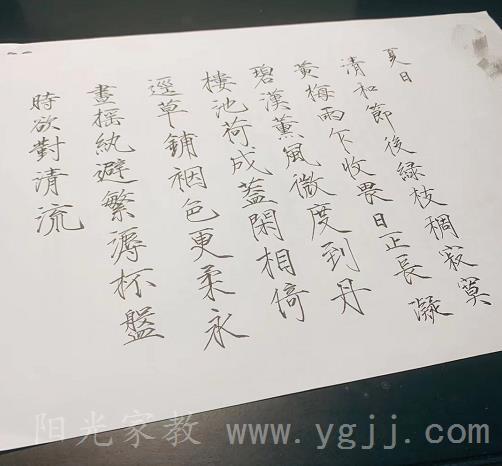 夏日
清和節後緑枝稠寂寞
黄梅雨乍收畏日正長凝
碧漢薰風微度到丹
樓池荷成蓋閑相倚
逕草鋪裀色更柔永
晝摇紈避繁溽杯盤
時欲對清流
阳光家教 www.ygjj.com